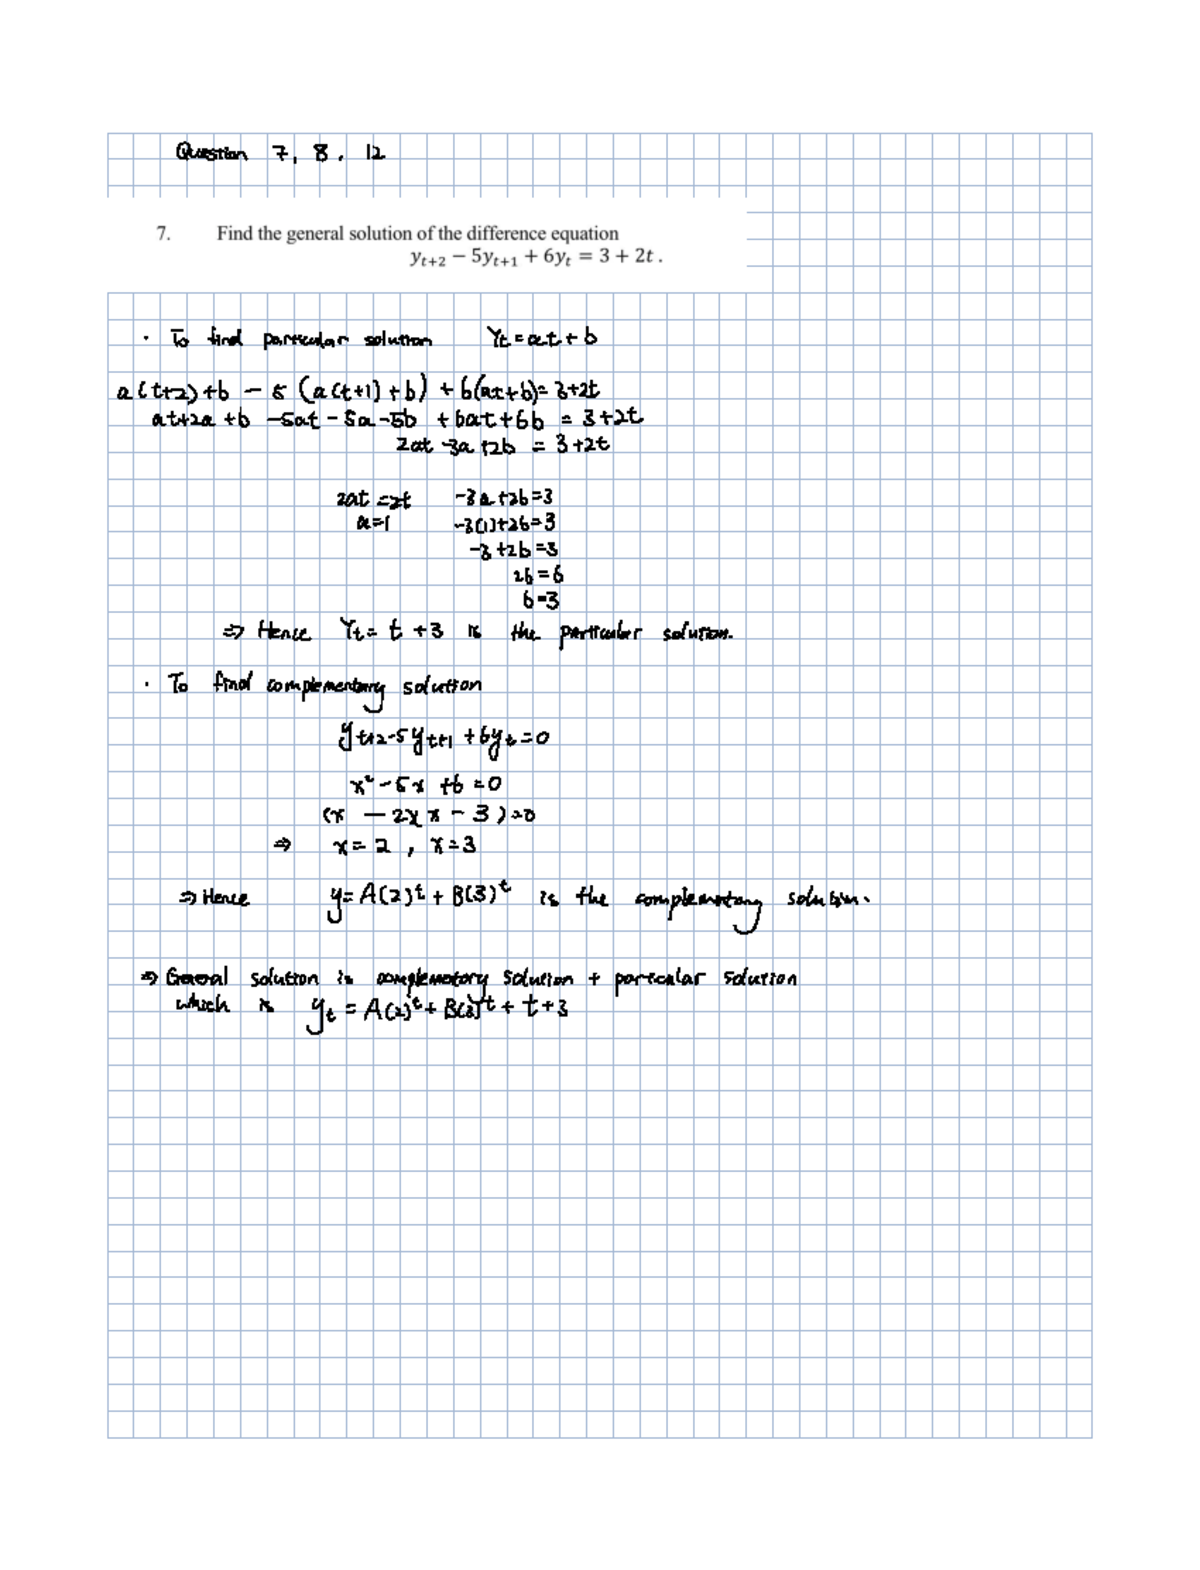 Question 7, 8, 12
7. Find the general solution of the difference equation
yₜ₊₂ − 5yₜ₊₁ + 6yₜ = 3 + 2t .
· To find particular solution Yt = at + b
a(t+2)+b − 5(a(t+1)+b) + 6(at+b) = 3+2t
at+2a+b −5at −5a −5b +6at+6b = 3+2t
2at −3a+2b = 3+2t
2at = 2t −3a+2b=3
a=1 −3(1)+2b=3
−3+2b=3
2b=6
b=3
⇒ Hence Yt = t + 3 is the particular solution.
· To find complementary solution
yt+2 −5yt+1 +6yt = 0
x² − 5x + 6 = 0
(x − 2)(x − 3) = 0
⇒ x = 2 , x = 3
⇒ Hence y = A(2)ᵗ + B(3)ᵗ is the complemetary solution.
⇒ General solution is complematory solution + particular solution
which is yt = A(2)ᵗ + B(3)ᵗ + t + 3